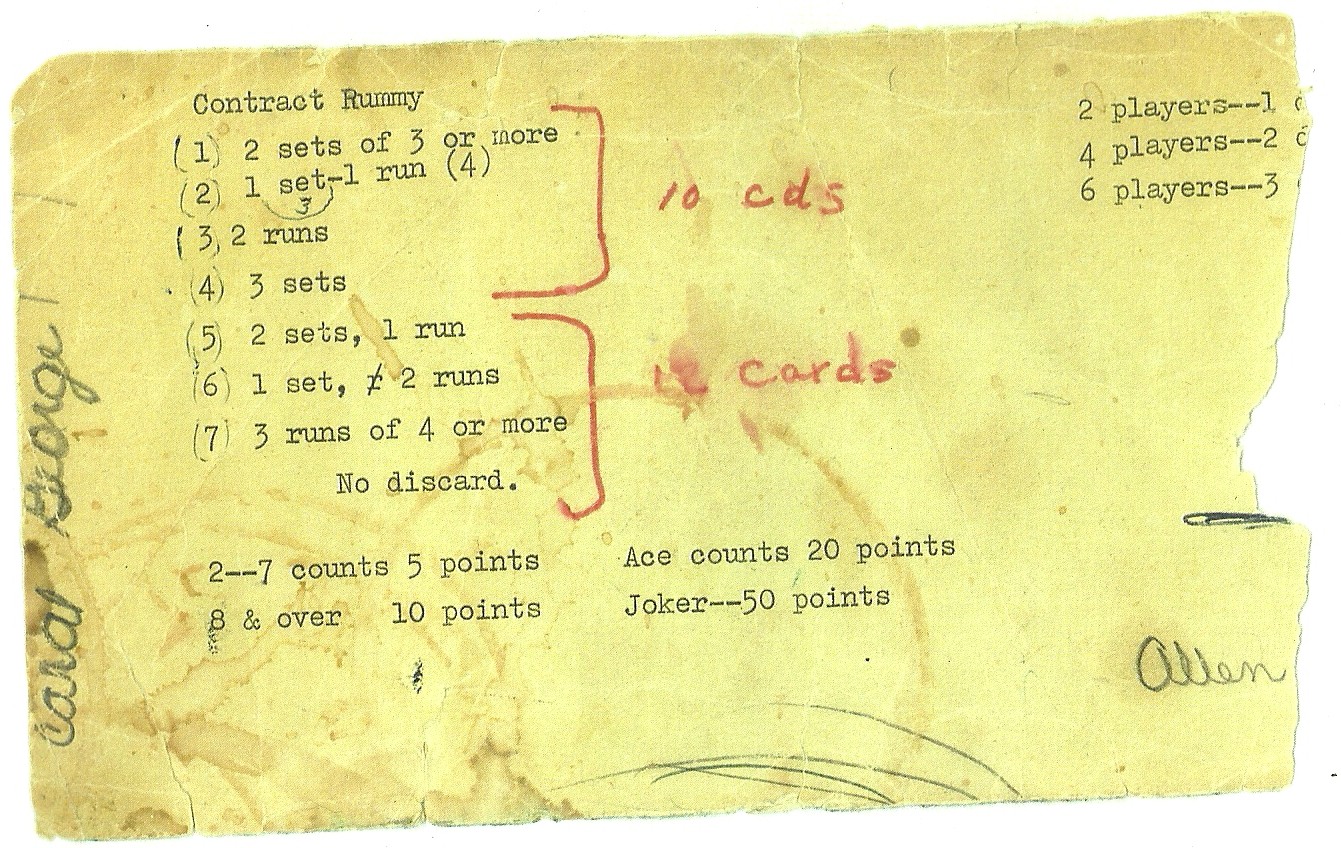 Contract Rummy
(1) 2 sets of 3 or more
(2) 1 set-1 run (4)
3
(3) 2 runs
(4) 3 sets
10 cds
(5) 2 sets, 1 run
(6) 1 set, 2 runs
(7) 3 runs of 4 or more
No discard.
12 cards
2 players--1
4 players--2
6 players--3
2--7 counts 5 points
8 & over 10 points
Ace counts 20 points
Joker--50 points
Allen
Carol George